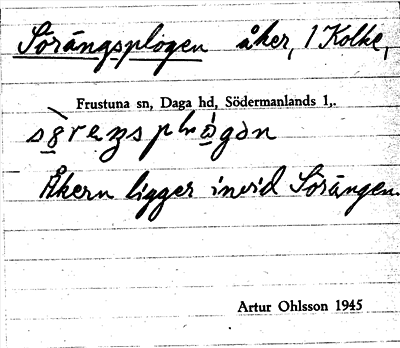 Sörängsplogen åker, 1 Kolke,
Frustuna sn, Daga hd, Södermanlands l,.
Åkern ligger invid Sörängen.
Artur Ohlsson 1945